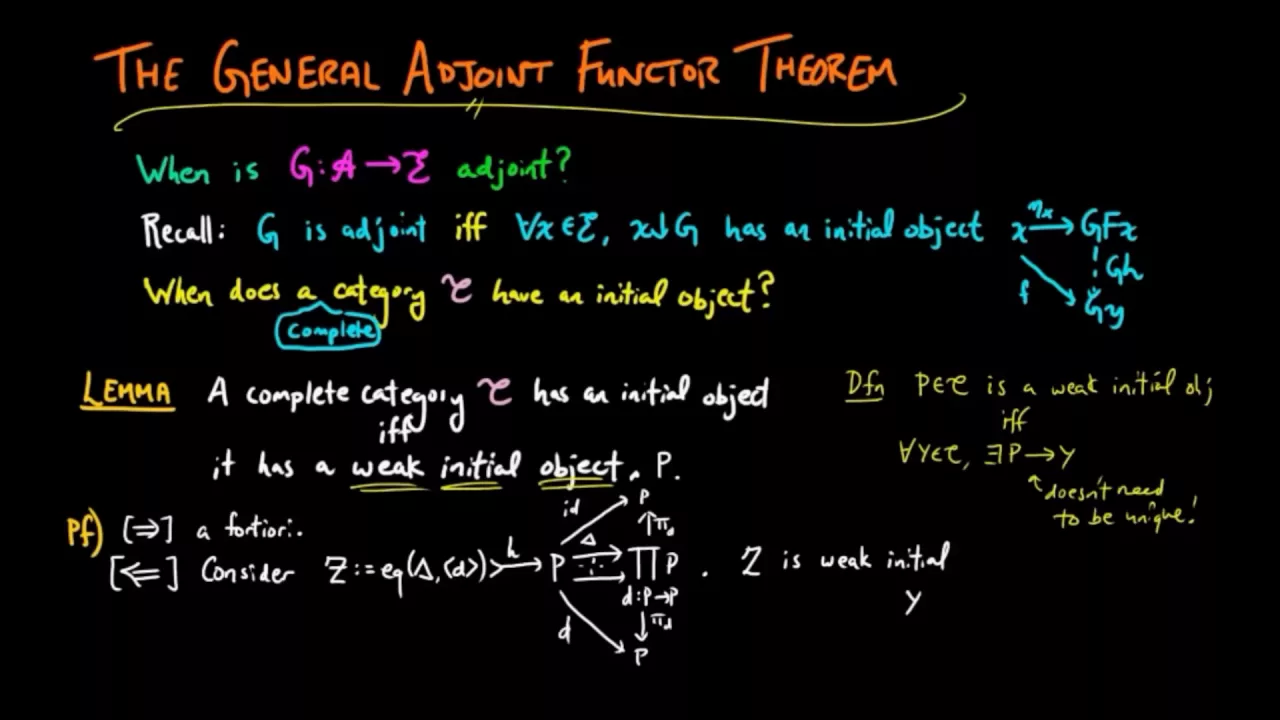 THE GENERAL ADJOINT FUNCTOR THEOREM
When is G:A→X adjoint?
Recall: G is adjoint iff ∀x∈X, x↓G has an initial object
x ηx→ GFx
f ¦ Gh
Gy
When does a category C have an initial object?
complete
LEMMA A complete category C has an initial object
iff
it has a weak initial object, P.
Dfn P∈C is a weak initial obj
iff
∀Y∈C, ∃P→Y
doesn't need
to be unique!
Pf) [⇒] a fortiori.
[⇐] Consider Z:=eq(Δ,⟨d⟩) h→ P Δ ∏ P . Z is weak initial
d:P→P
id P
π_d
d π_d
P
Y